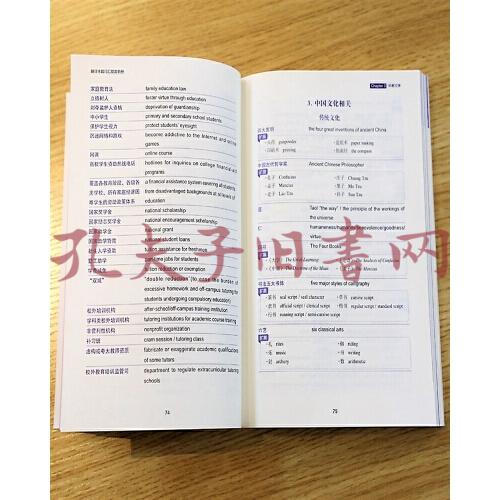 家庭教育法 family education law
立德树人 foster virtue through education
剥夺监护人资格 deprivation of guardianship
中小学生 primary and secondary students
保护学生视力 protect students' eyesight
沉迷网络和游戏 become addictive to the Internet and online
games
网课 online course
hotlines for inquiries on college financial
programs
覆盖各教育阶段、各级各 a financial assistance system covering all students
类学校、所有家庭经济困 from disadvantaged backgrounds at all levels of
难学生的资助政策体系 education
国家奖学金 national scholarship
国家励志奖学金 national encouragement scholarship
国家助学金 national grant
国家助学贷款 national student loans
tuition assistance for freshmen
勤工助学 part-time jobs for students
学费减免 tuition remission or exemption
“双减” "double reduction" (to ease the burden of
excessive homework and off-campus tutoring for
students undergoing compulsory education)
校外培训机构 after-school/off-campus training institution
学科类校外培训机构 tutoring institutions for academic course training
非营利性机构 nonprofit organization
补习班 cram session / tutoring class
虚构或夸大教师资质 fabricate or exaggerate academic qualifications
of some tutors
校外教育培训监管司 department to regulate extracurricular tutoring
schools
74
Chapter 3
3. 中国文化相关
传统文化
四大发明 the four great inventions of ancient China
gunpowder 造纸术 paper making
印刷术 printing 指南针 the compass
中国古代哲学家 Ancient Chinese Philosopher
孔子 Confucius 庄子 Chuang Tzu
孟子 Mencius 墨子 Mo Tzu
老子 Lao Tzu 孙子 Sun Tzu
道 Tao/ "the way" / the principle of the workings of
the universe
仁 humaneness/humanity/benevolence/goodness/
virtue
四书 The Four Books
《大学》 The Great Learning 《论语》 The Analects of Confucius
《中庸》 The Doctrine of the Mean 《孟子》 The Mencius
书法五大书体 five major styles of calligraphy
篆书 seal script / seal character 草书 cursive script
隶书 official script / clerical script 楷书 regular script / standard script
行书 running script / semi-cursive script
六艺 six classical arts
礼 rites 御 riding
乐 music 书 writing
射 archery 数 arithmetic
75
孔夫子旧书网